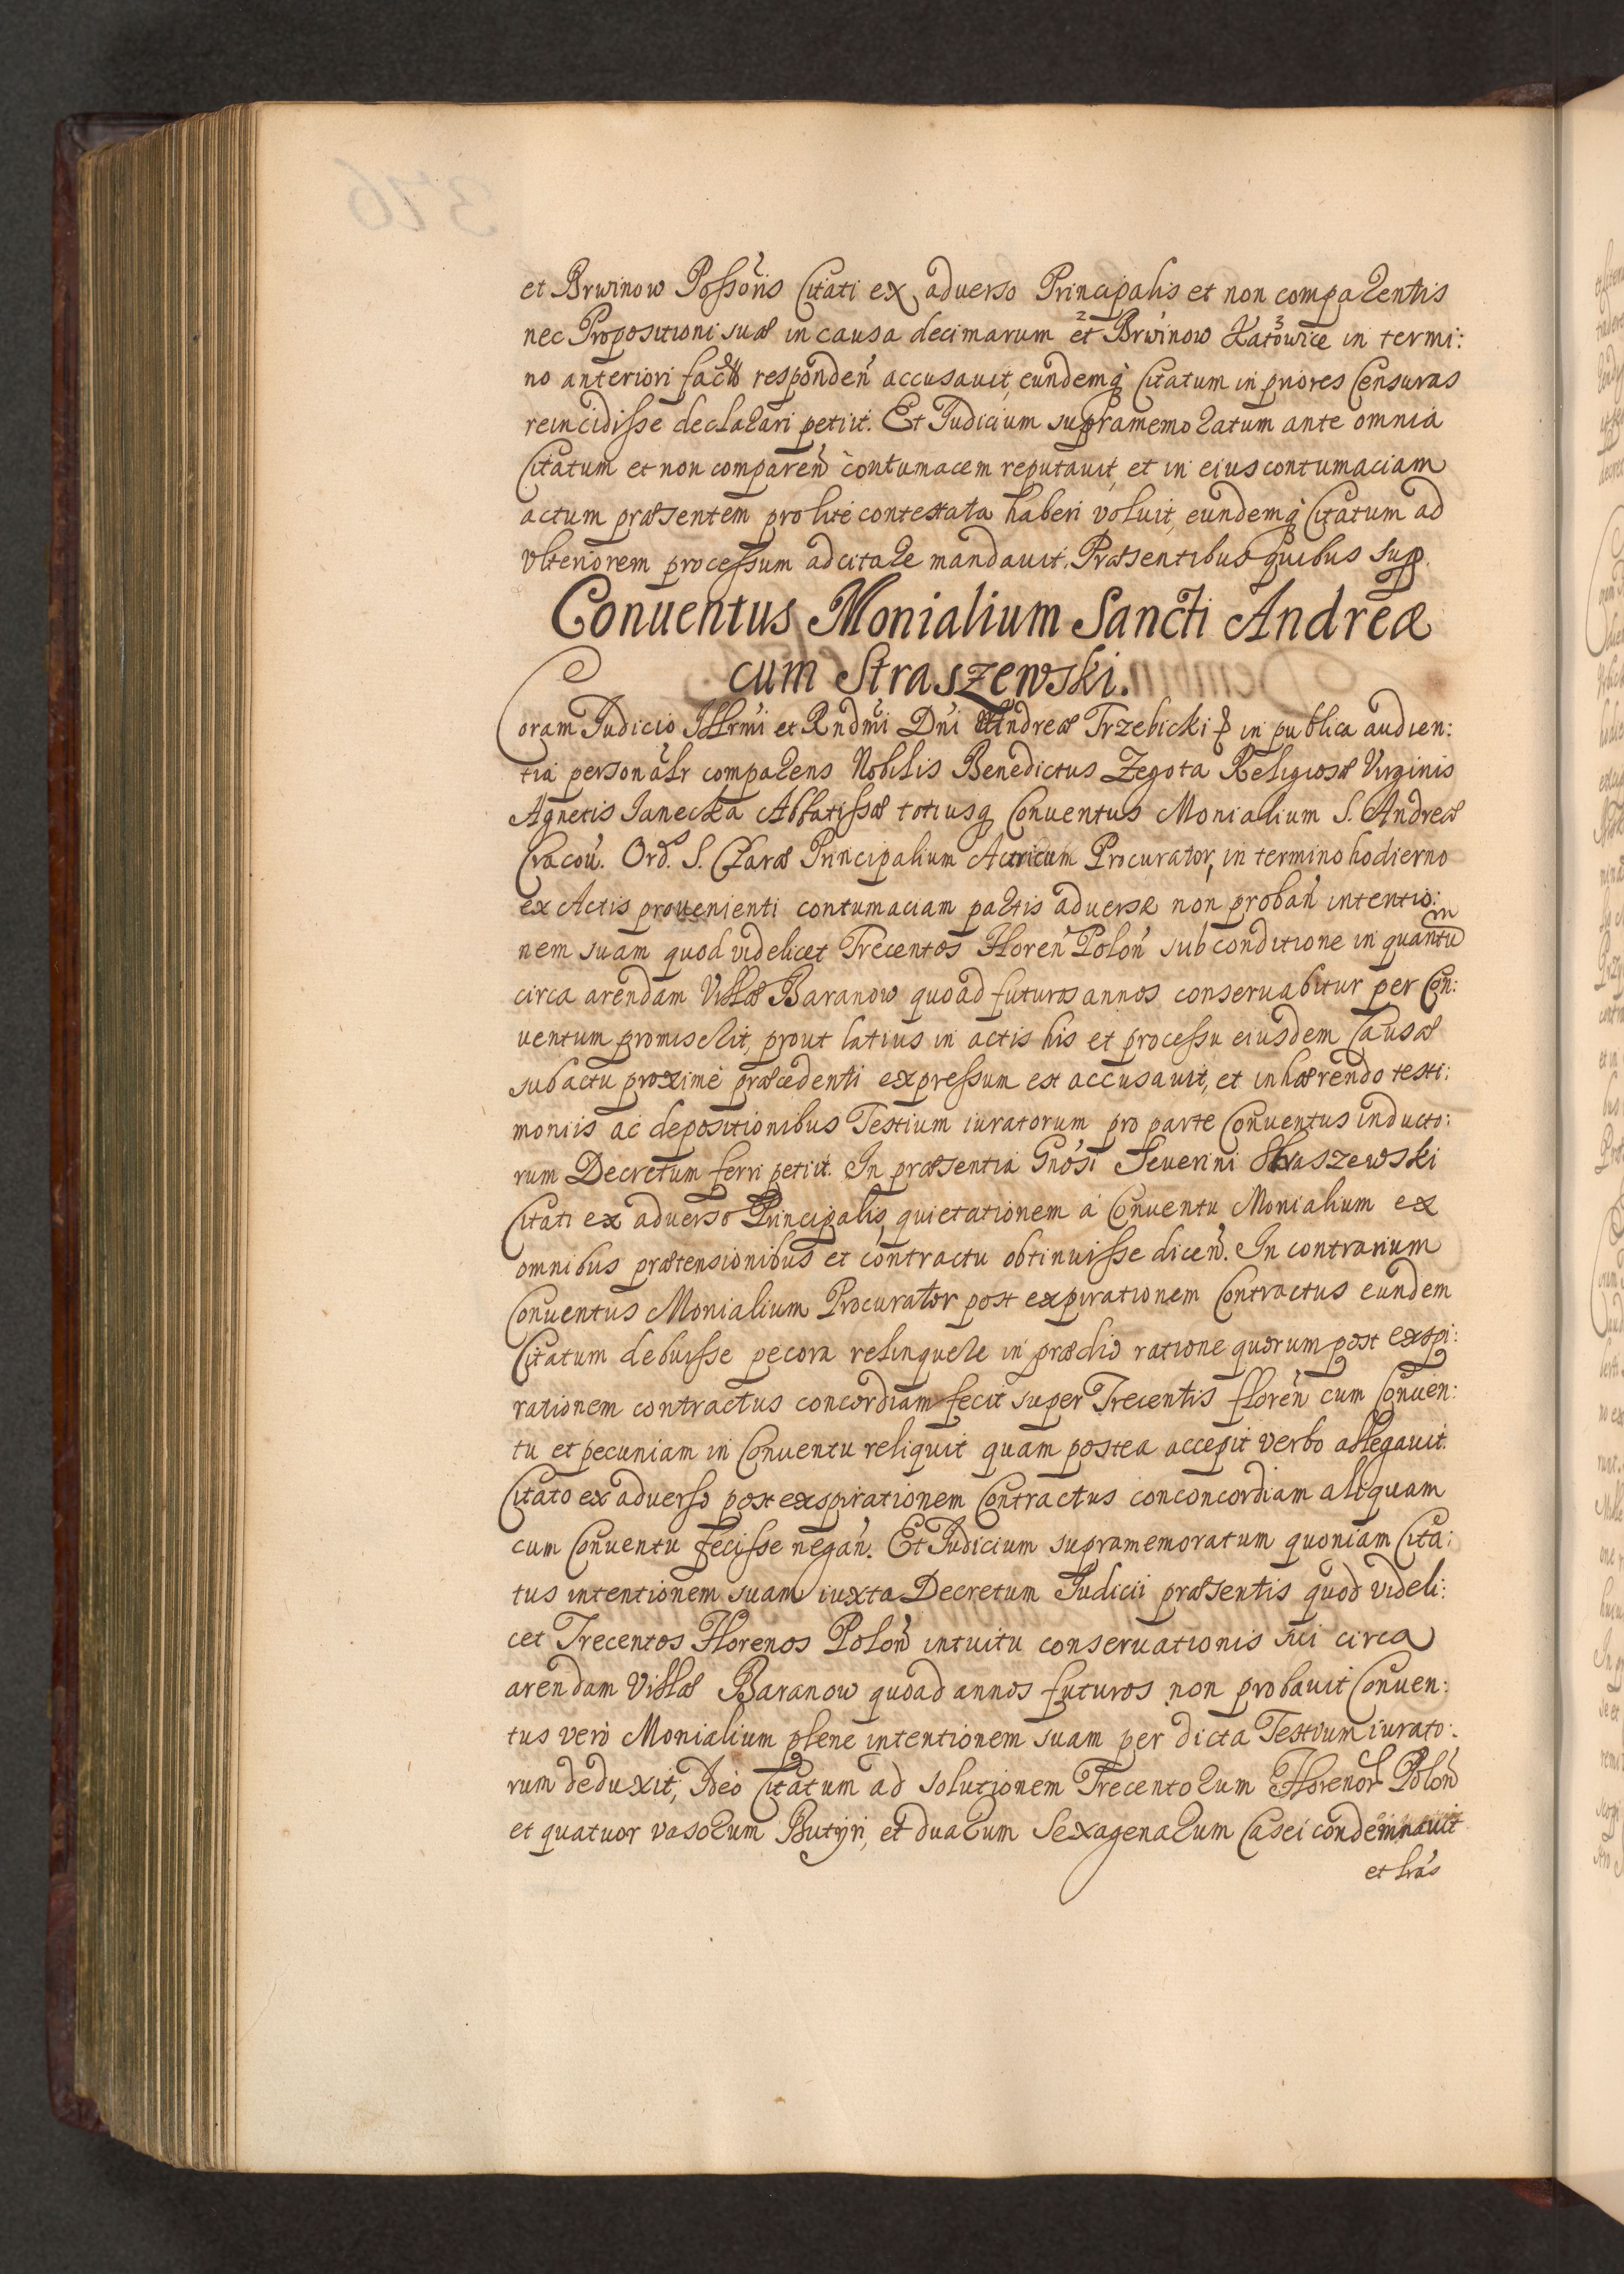 et Brwinow Possoris Citati ex aduerso Principalis et non comparentis
nec Propositioni suæ in causa decimarum et Brwinow Katowice in termi:
no anteriori factæ responden̄ accusauit, eundemq̨ Citatum in priores Censuras
reincidisse declarari petiit. Et Iudicium supramemoratum ante omnia
Citatum et non comparen̄ contumacem reputauit, et in eius contumaciam
actum præsentem pro lite contestata haberi voluit, eundemq̨ Citatum ad
vlteriorem processum adcitare mandauit. Præsentibus quibus sup.
Conuentus Monialium Sancti Andreæ
cum Straszewski.
Coram Iudicio Illrmi et Rndmi Dni Andreæ Trzebicki in publica audien:
tia personalr comparens Nobilis Benedictus Zegota Religiosæ Virginis
Agnetis Janecka Abbatissæ totiusq̨ Conuentus Monialium S. Andreæ
Cracou. Ord. S. Claræ Principalium Actricum Procurator, in termino hodierno
ex Actis prouenienti contumaciam partis aduersæ non proban̄ intentio:
nem suam quod videlicet Trecentos Floren̄ Polon̄ sub conditione in quantum
circa arendam Villæ Baranow quoad futuros annos conseruabitur per Con:
uentum promiserit, prout latius in actis his et processu eiusdem Causæ
sub actu proximè præcedenti expressum est accusauit, et inhærendo testi:
moniis ac depositionibus Testium iuratorum pro parte Conuentus inducto:
rum Decretum ferri petiit. In præsentia Gnosi Seuerini Straszewski
Citati ex aduerso Principalis, quietationem à Conuentu Monialium ex
omnibus prætensionibus et contractu obtinuisse dicen̄. In contrarium
Conuentus Monialium Procurator post expirationem Contractus eundem
Citatum debuisse pecora relinquere in prædio ratione quorum post exspi:
rationem contractus concordiam fecit super Trecentis floren̄ cum Conuen:
tu et pecuniam in Conuentu reliquit quam postea accepit verbo allegauit.
Citato ex aduerso post exspirationem Contractus conconcordiam aliquam
cum Conuentu fecisse negan̄. Et Iudicium supramemoratum quoniam Cita:
tus intentionem suam iuxta Decretum Iudicii præsentis quod videli:
cet Trecentos Florenos Polon̄ intuitu conseruationis sui circa
arendam Villæ Baranow quoad annos futuros non probauit Conuen:
tus verò Monialium plene intentionem suam per dicta Testium iurato:
rum deduxit, Ideo Citatum ad solutionem Trecentorum Florenor Polon̄
et quatuor vasorum Butyri, et duarum Sexagenarum Casei condemnauit
et lrás